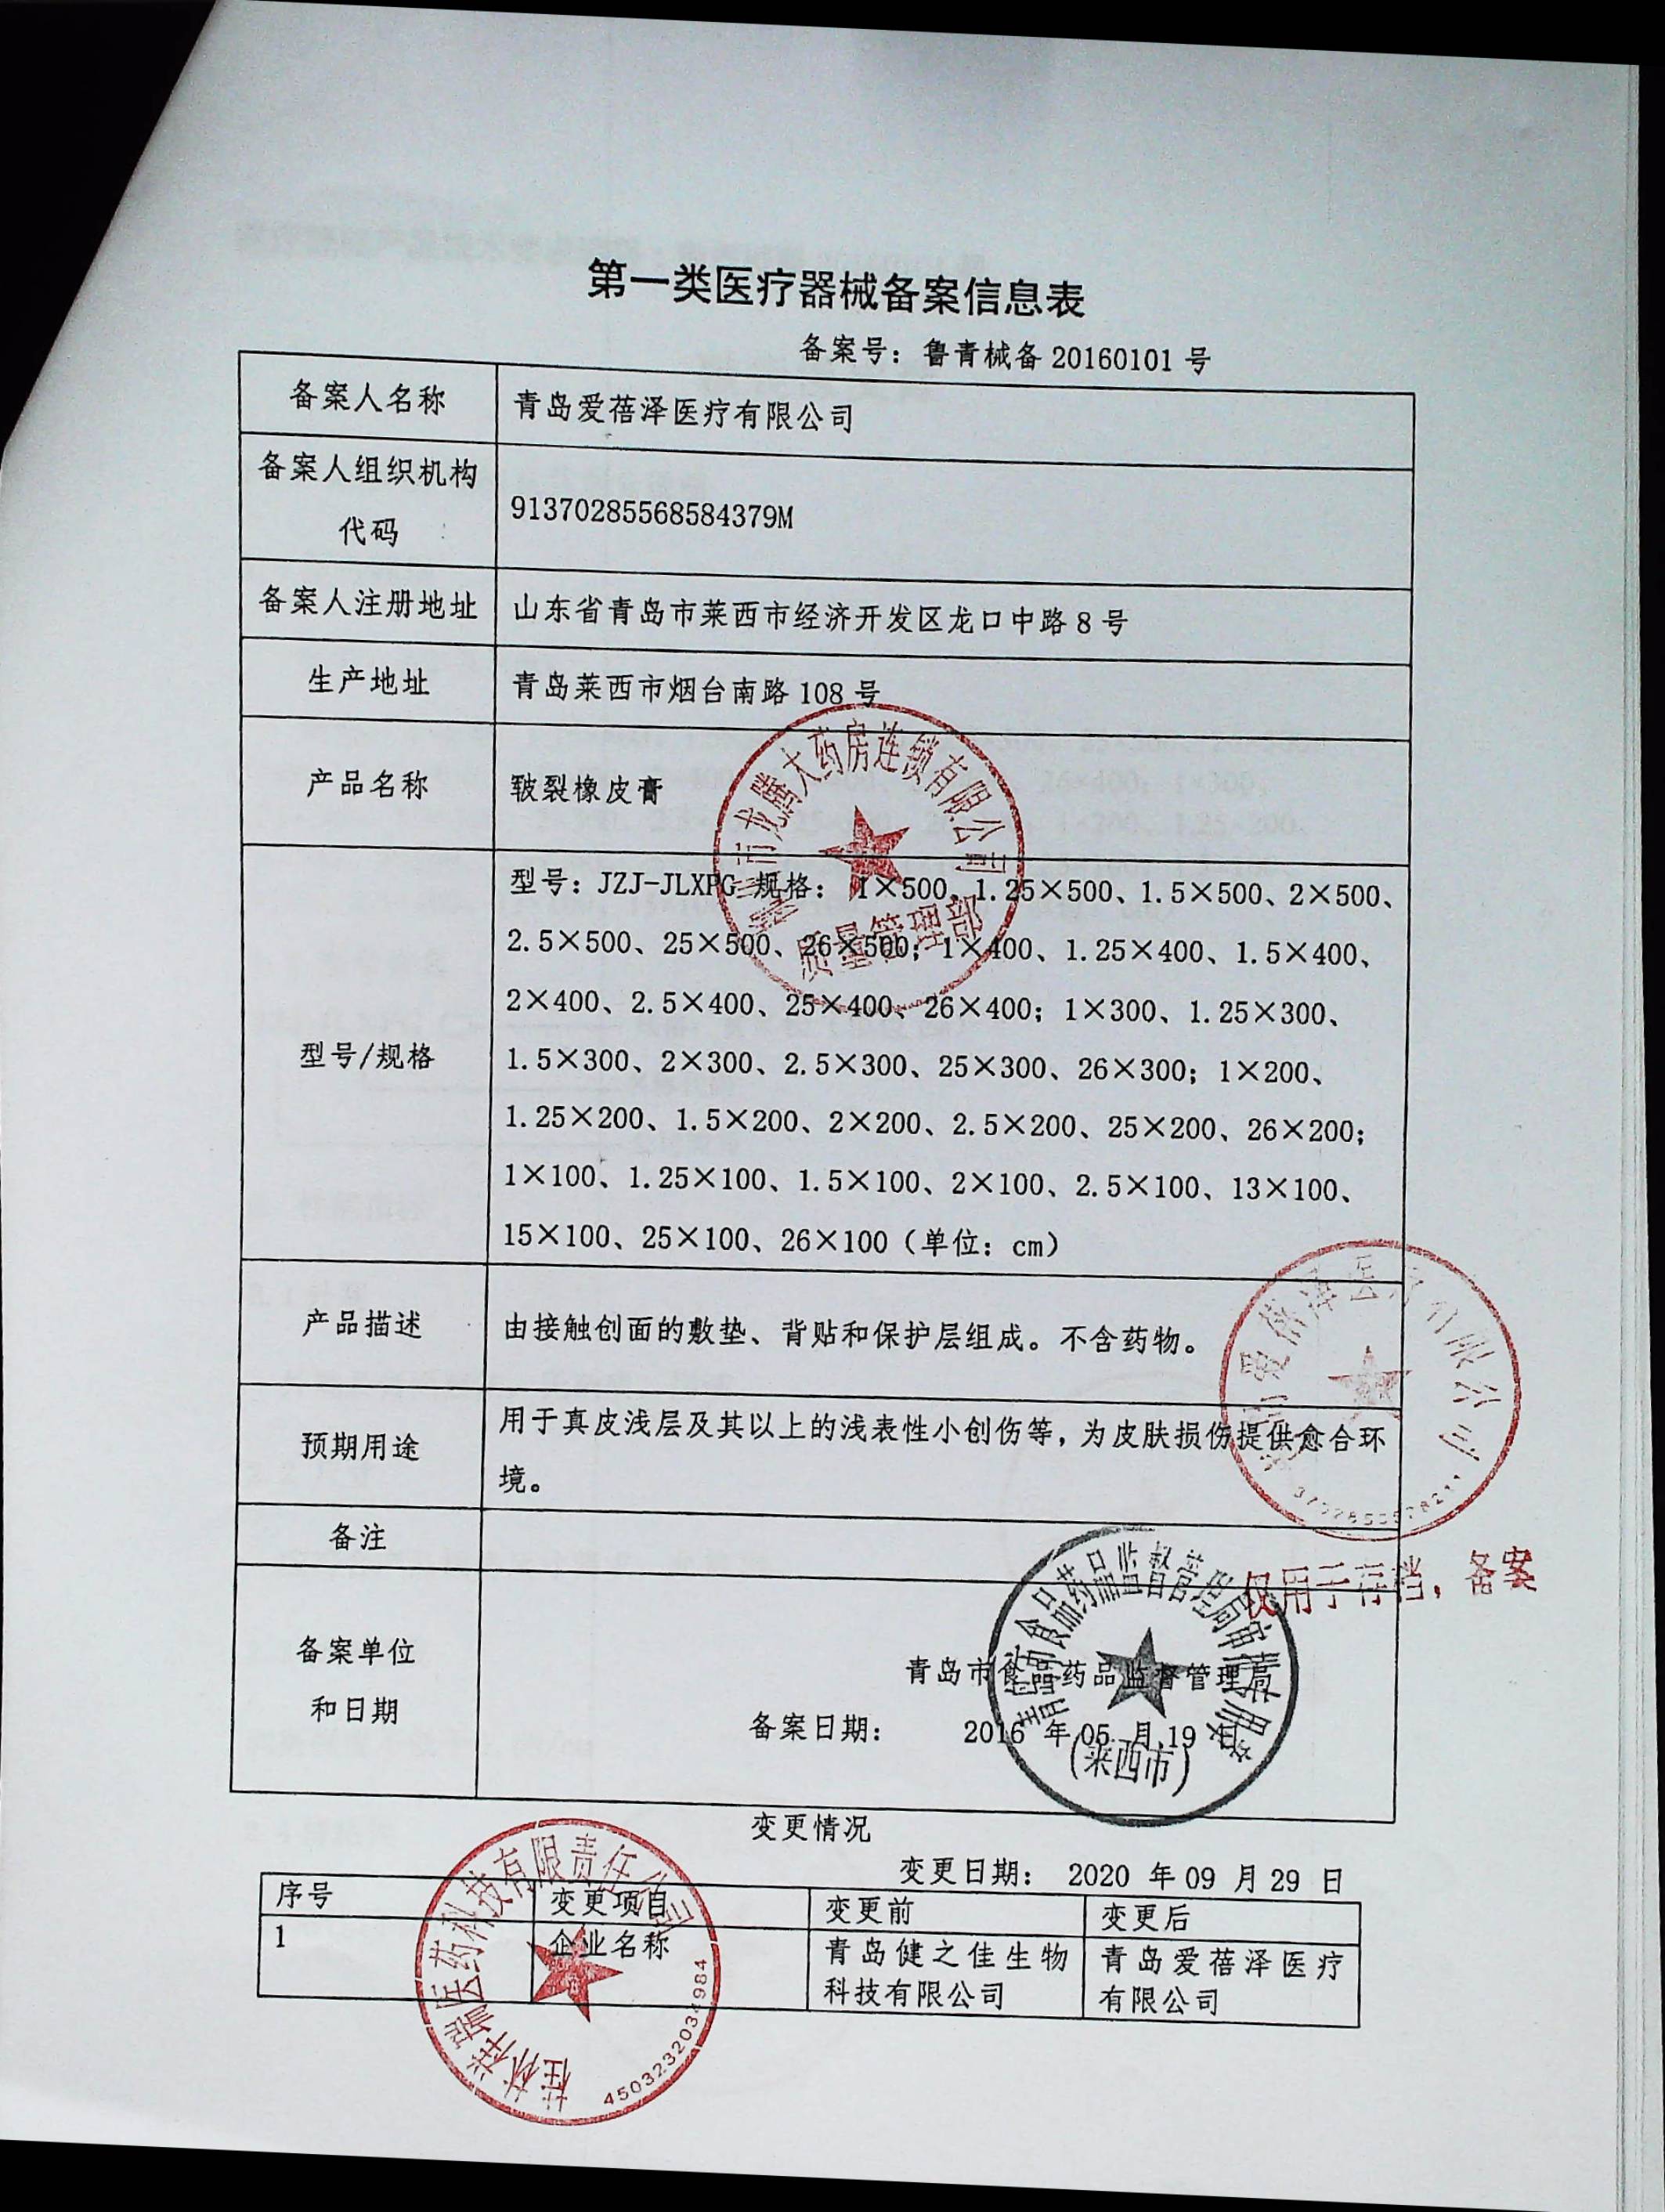 第一类医疗器械备案信息表
备案号：鲁青械备 20160101 号
备案人名称
青岛爱蓓泽医疗有限公司
备案人组织机构
代码
91370285568584379M
备案人注册地址
山东省青岛市莱西市经济开发区龙口中路 8 号
生产地址
青岛莱西市烟台南路 108 号
产品名称
皲裂橡皮膏
型号/规格
型号：JZJ-JLXPG 规格： 1×500、1.25×500、1.5×500、2×500、
2.5×500、25×500、26×500；1×400、1.25×400、1.5×400、
2×400、2.5×400、25×400、26×400；1×300、1.25×300、
1.5×300、2×300、2.5×300、25×300、26×300；1×200、
1.25×200、1.5×200、2×200、2.5×200、25×200、26×200；
1×100、1.25×100、1.5×100、2×100、2.5×100、13×100、
15×100、25×100、26×100（单位：cm）
产品描述
由接触创面的敷垫、背贴和保护层组成。不含药物。
预期用途
用于真皮浅层及其以上的浅表性小创伤等，为皮肤损伤提供愈合环
境。
备注
备案单位
和日期
青岛市食品药品监督管理局
备案日期： 2016 年 05 月 19 日
变更情况
变更日期： 2020 年 09 月 29 日
序号
变更项目
变更前
变更后
1
企业名称
青岛健之佳生物
科技有限公司
青岛爱蓓泽医疗
有限公司
市龙腾大药房连锁有限公司
质量管理部
爱蓓泽医疗有限公司
仅用于存档，备案
青岛市食品药品监督管理局审批
(莱西市)
桂林祥瑞医药科技有限责任公司
4503232034984